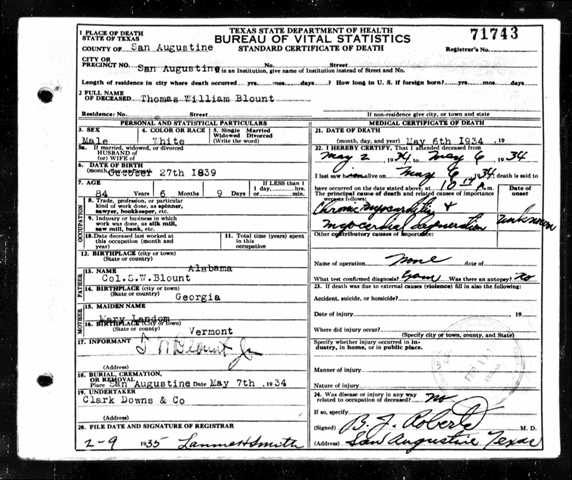 TEXAS STATE DEPARTMENT OF HEALTH
BUREAU OF VITAL STATISTICS
STANDARD CERTIFICATE OF DEATH
71743
Registrar's No.
1 PLACE OF DEATH
STATE OF TEXAS
COUNTY OF San Augustine
CITY OR
PRECINCT NO. San Augustine No. Street
is an Institution, give name of Institution instead of Street and No.
Length of residence in city where death occurred yrs. mos. days. How long in U. S. if foreign born? yrs. mos. days
2 FULL NAME
OF DECEASED Thomas William Blount
Residence: No. Street
If non-residence give city, or town and state
PERSONAL AND STATISTICAL PARTICULARS
3. SEX 4. COLOR OR RACE 5. Single Married Widowed Divorced (Write the word)
Male White
5a. If married, widowed, or divorced
HUSBAND OF
(or) WIFE OF
6. DATE OF BIRTH
October 27th 1839
7. AGE
84 Years 6 Months 9 Days If LESS than 1 day, hrs. min.
OCCUPATION
8. Trade, profession, or particular
kind of work done, as spinner,
sawyer, bookkeeper, etc.
9. Industry or business in which
work was done, as silk mill,
saw mill, bank, etc.
10. Date deceased last worked at
this occupation (month and
year)
11. Total time (years)
spent in this
occupation
12. BIRTHPLACE (city or town)
(State or country)
Alabama
FATHER
13. NAME
Col.S.W.Blount
14. BIRTHPLACE (city or town)
(State or country)
Georgia
MOTHER
15. MAIDEN NAME
Mary Landom
16. BIRTHPLACE (city or town)
(State or country)
Vermont
17. INFORMANT
T W Blount Jr
(Address)
18. BURIAL, CREMATION,
OR REMOVAL
Place San Augustine Date May 7th 1934
19. UNDERTAKER
Clark Downs & Co
(Address)
20. FILE DATE AND SIGNATURE OF REGISTRAR
2-9 1935 Lannie H Smith
MEDICAL CERTIFICATE OF DEATH
21. DATE OF DEATH
(month, day, and year) May 6th 1934
22. I HEREBY CERTIFY, That I attended deceased from
May 2 1934 to May 6 1934
I last saw h alive on May 6 1934 death is said to
have occurred on the date stated above at 10 m.
The principal cause of death and related causes of importance
were as follows:
Date of onset
Chronic myocarditis &
myocardial degeneration unknown
Other contributory causes of importance:
Name of operation None date of
What test confirmed diagnosis? Exam Was there an autopsy? No
23. If death was due to external causes (violence) fill in also the following:
Accident, suicide, or homicide?
Date of injury 19
Where did injury occur?
(Specify city or town, county, and State)
Specify whether injury occurred in in-
dustry, in home, or in public place.
Manner of injury
Nature of injury
24. Was disease or injury in any way
related to occupation of deceased? No
If so, specify
(Signed) B. J. Roberts M. D.
(Address) San Augustine Texas